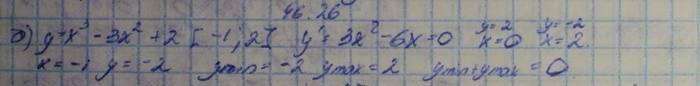 46.26
б) y=x³-3x²+2 [-1;2] y'=3x²-6x=0 y=2 x=0 y=-2 x=2
x=-1 y=-2 ymin=-2 ymax=2 ymin+ymax=0